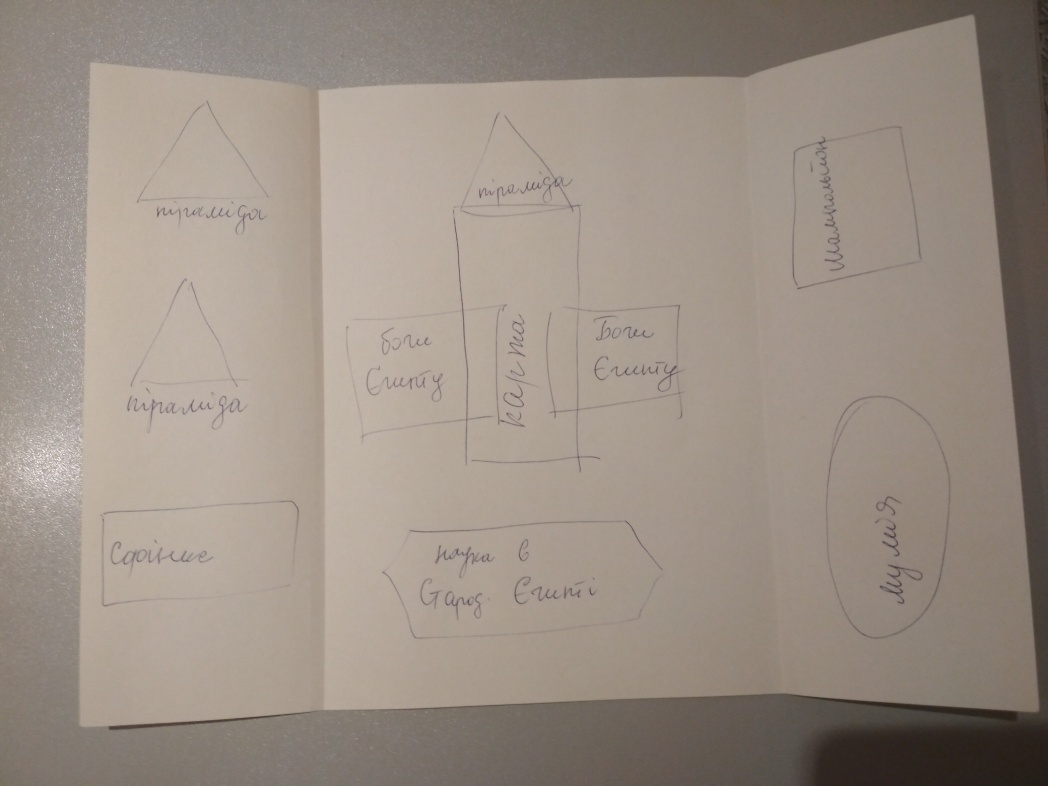 піраміда
піраміда
Сфінкс
піраміда
боги
Єгипту
карта
Боги
Єгипту
наука в
Старод. Єгипті
Шампольйон
мумія